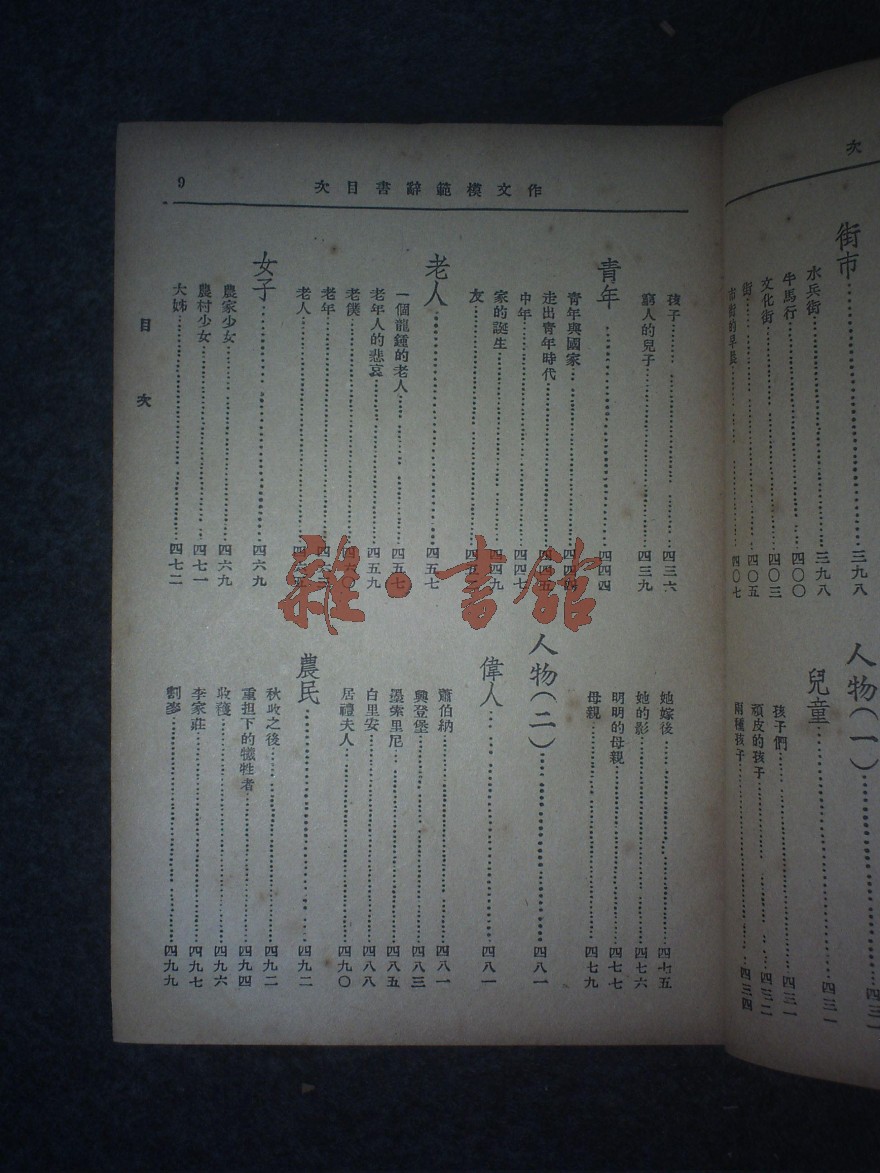 次
街市……三九八
水兵街……三九八
牛馬行……四〇〇
文化街……四〇三
街……四〇五
市街的早晨……四〇七
人物(一)……四三一
兒童……四三一
孩子們……四三一
頑皮的孩子……四三二
兩種孩子……四三四
作文模範辭書目次
9
孩子……四三六
窮人的兒子……四三九
青年……四四四
青年與國家……四四四
走出青年時代……四四五
中年……四四七
家的誕生……四四九
友……四五
老人……四五七
一個龍鍾的老人……四五七
老年人的悲哀……四五九
老僕……四六〇
老年……四六
老人……四六
女子……四六九
農家少女……四六九
農村少女……四七一
大姊……四七二
她嫁後……四七五
她的影……四七六
明明的母親……四七七
母親……四七九
人物(二)……四八一
偉人……四八一
蕭伯納……四八一
興登堡……四八三
墨索里尼……四八五
白里安……四八八
居禮夫人……四九〇
農民……四九二
秋收之後……四九二
重担下的犧牲者……四九四
收穫……四九六
李家莊……四九七
割麥……四九九
目次
雜·書館